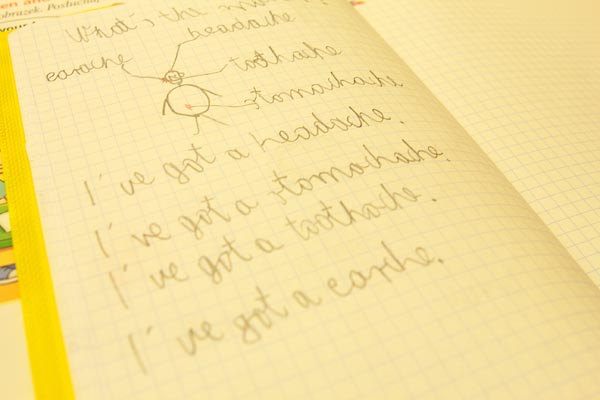 obrazek. Posłuchaj
What's the
headache
earache
toothache
stomachache
I've got a headache.
I've got a stomachache.
I've got a toothache.
I've got a earche.